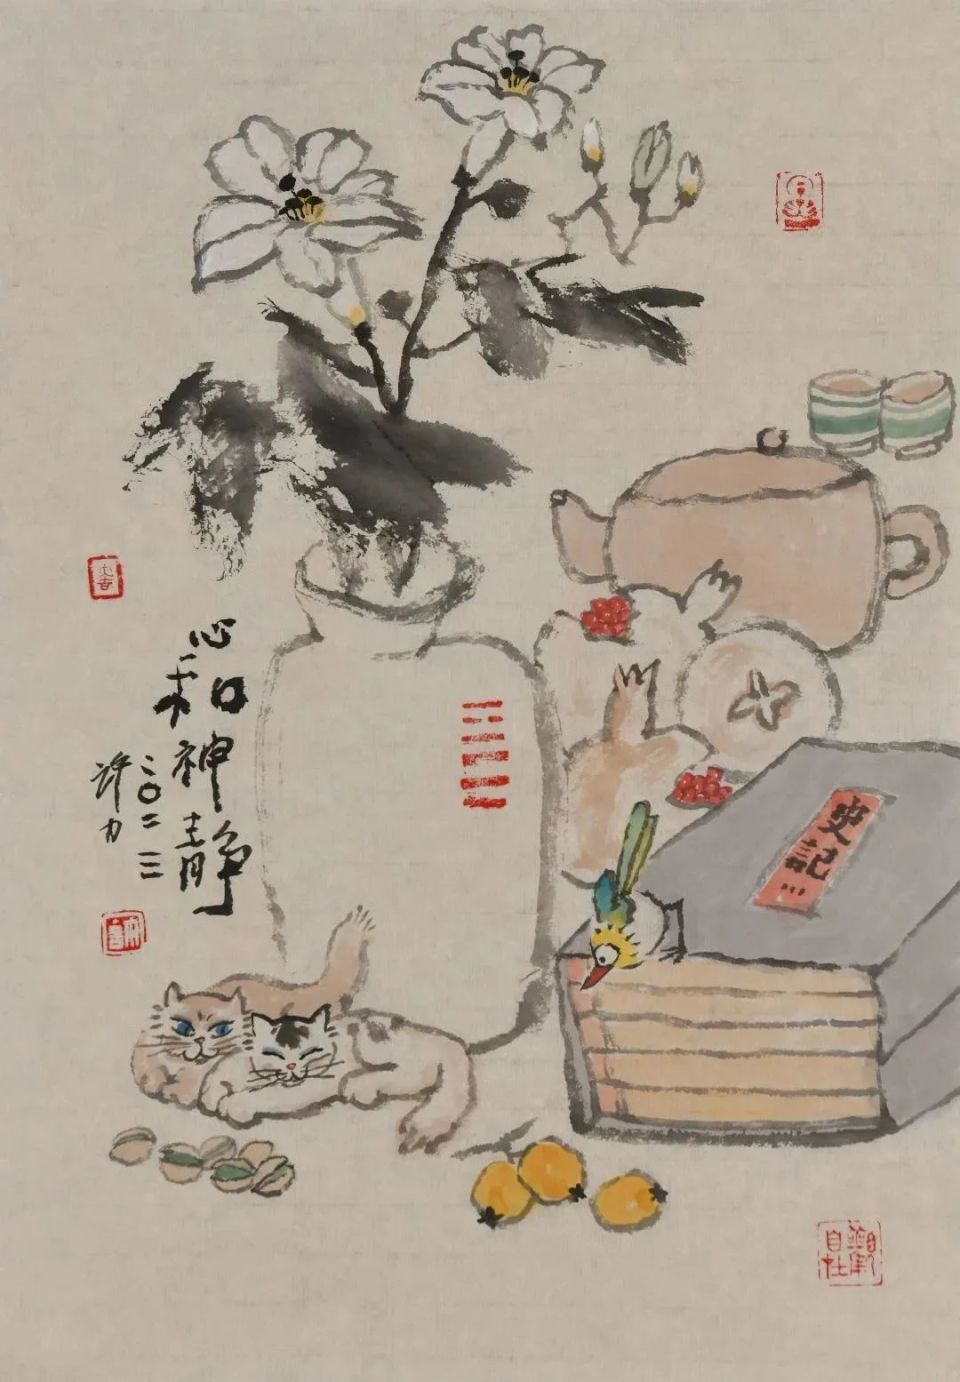 心和神静
二〇二三
许力
史記